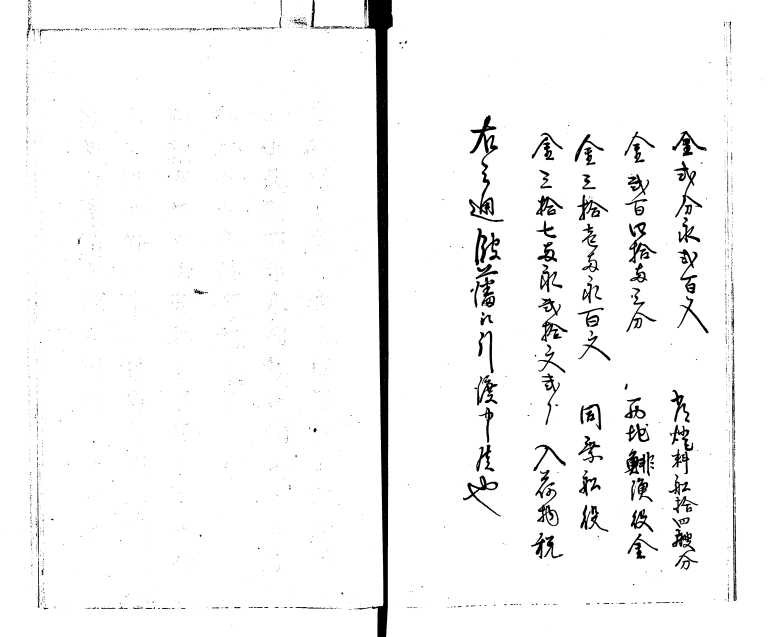 金弐分永弐百文 常燈料船拾四艘分
金弐百四拾両三分 両地鯡漁役金
金三拾壱両永百文 同乗船役
金三拾七両永弐拾文弐分 入荷物税
右之通 藩江引渡申候也